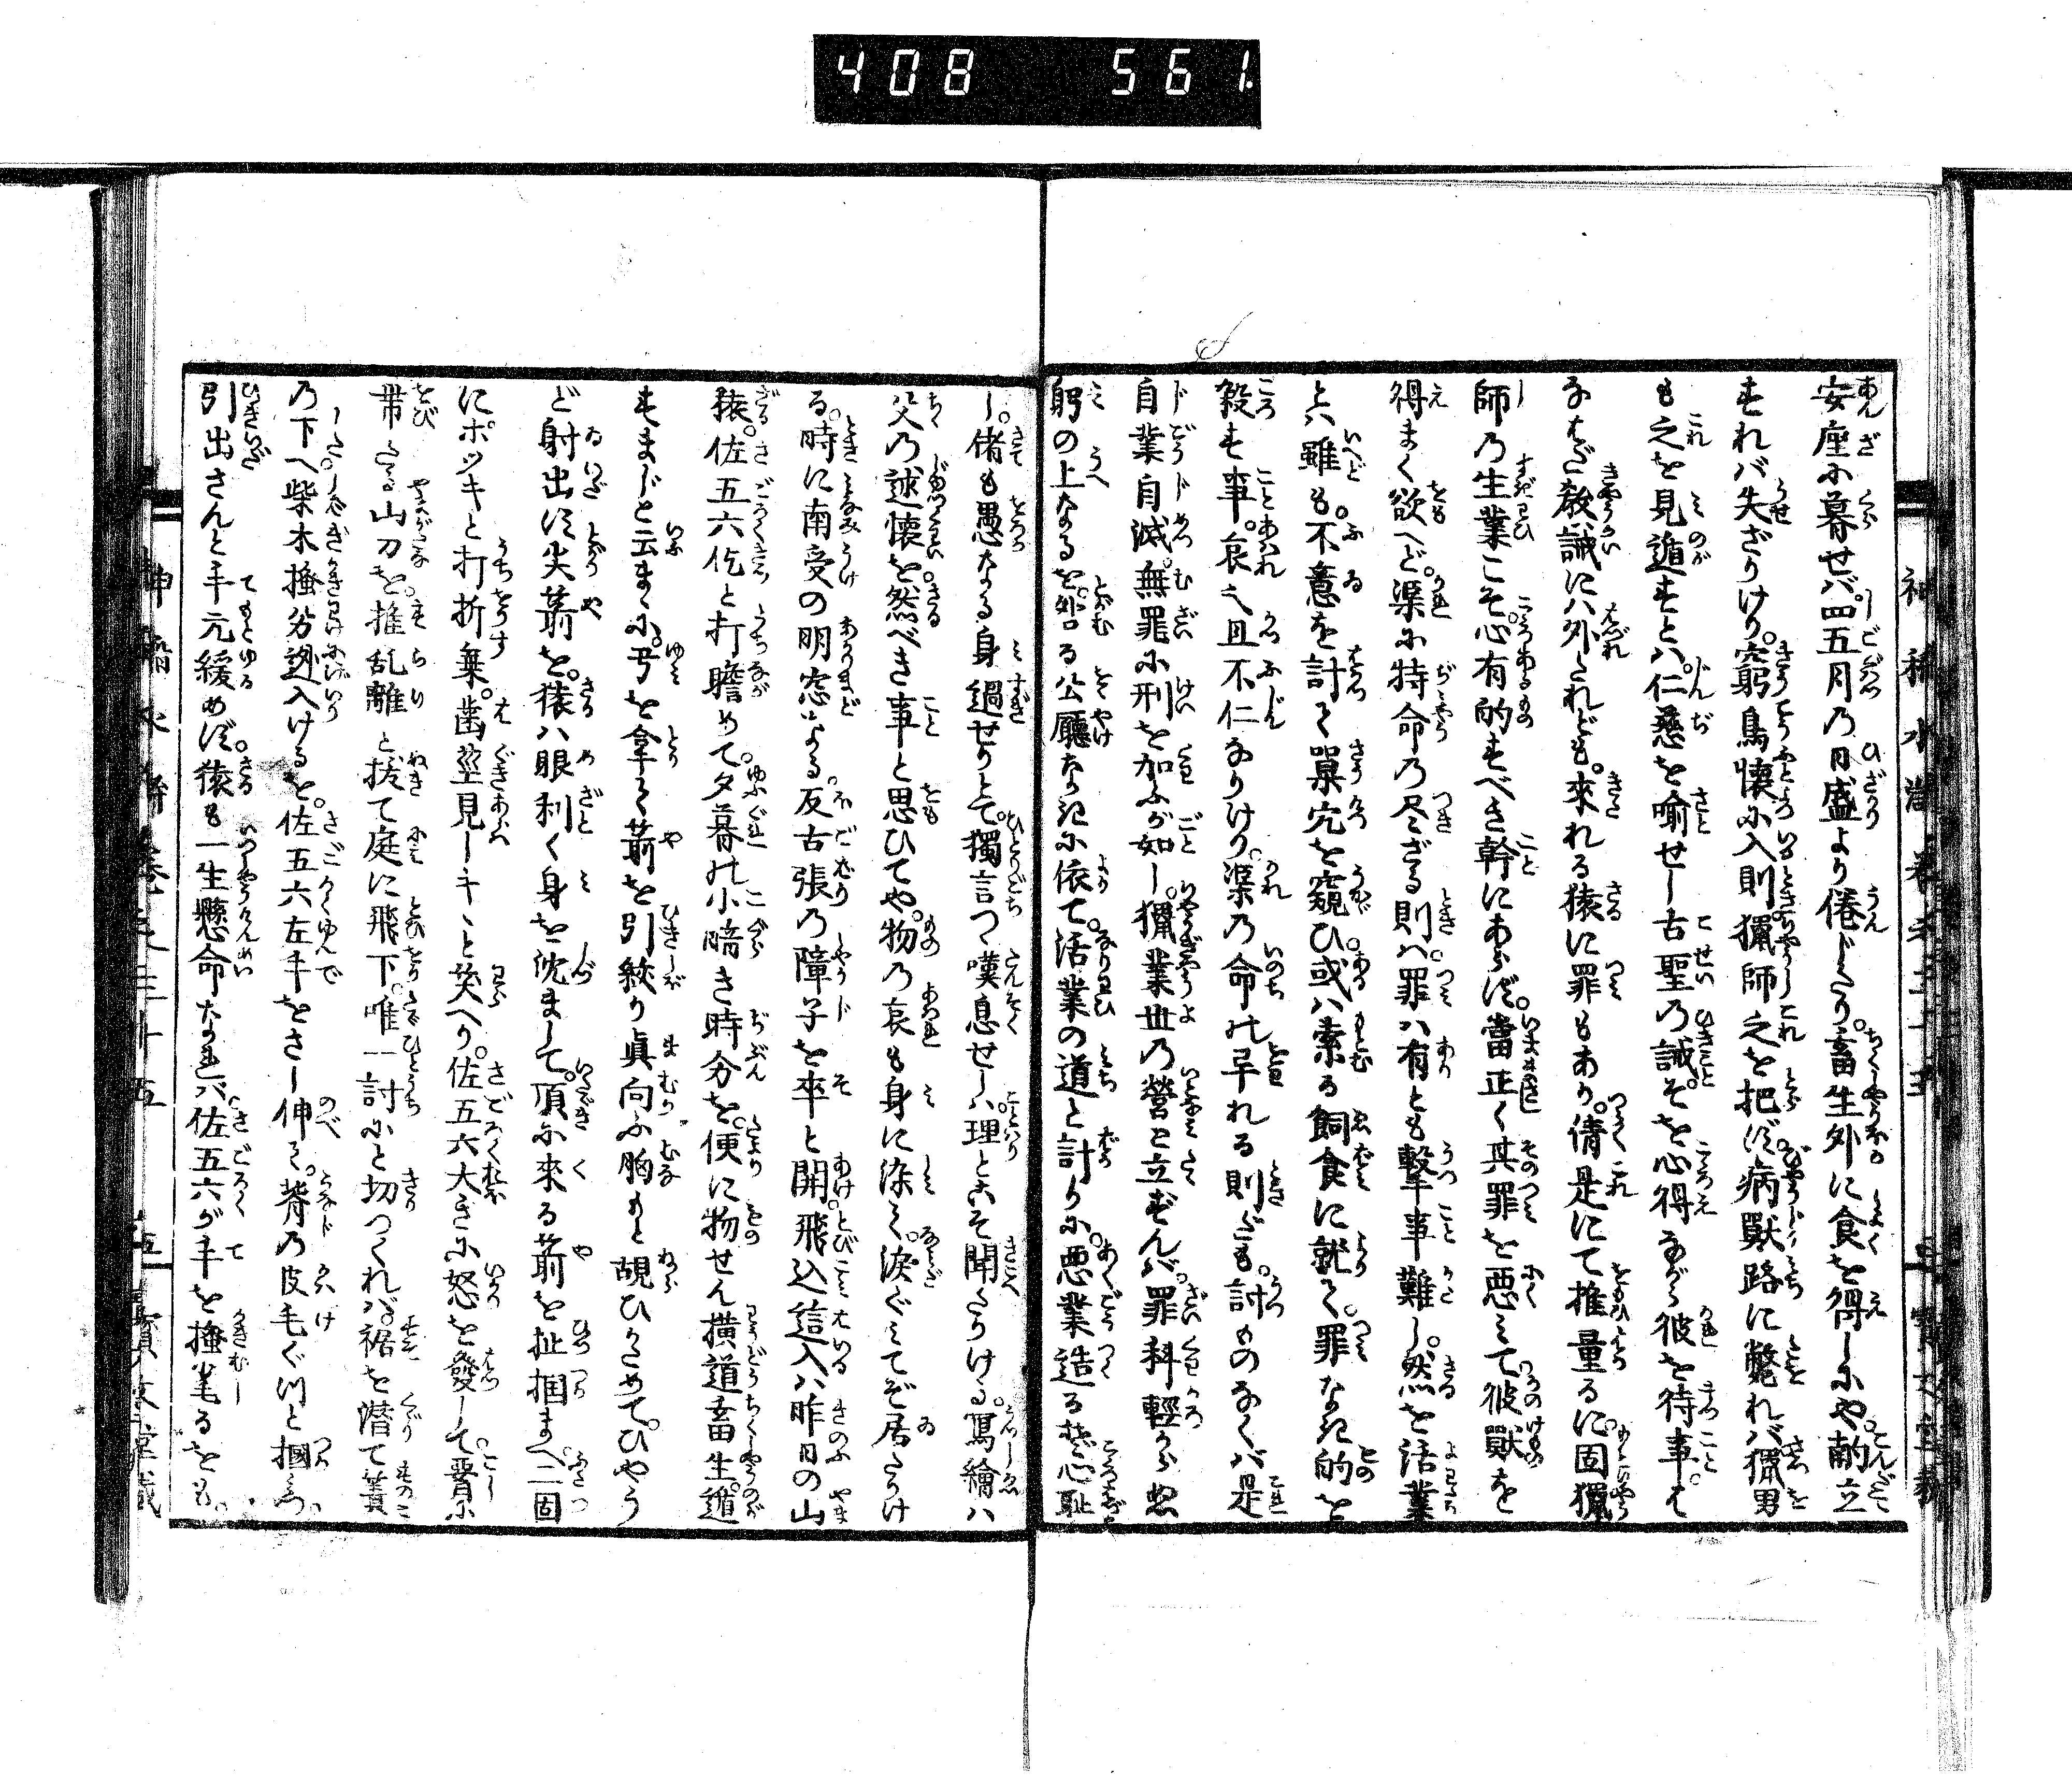 408 561
安座に暮せバ四五月の日盛より倦じたり畜生外に食を得しにや献立
すれバ失ざりけり窮鳥懐に入則獵師之を把ず病獸路に斃れバ獵男
も之を見遁すとハ仁慈を喩せし古聖の誡そを心得ながら彼を待事は
なほだ教誡にハ外たれども來れる猿に罪もあり倩是にて推量るに固獵
師の生業こそ心有的すべき幹にあらず當正く其罪を悪みて彼獸を
得まく欲へど渠に特命の尽ざる則ハ罪ハ有とも撃事難し然を活業
とハ雖も不意を計て巣穴を窺ひ或ハ索る餌食に就て罪なき的を
殺す事哀之且不仁なりけり渠の命の早れる則ども討ものなくバ是
自業自滅無罪に刑を加ふが如し獵業世の營と立ずんバ罪科輕からねど
躬の上なるを咎る公廳なきに依て活業の道と計りに悪業造る心恥
し偖も愚なる身過せりとて獨言つゝ嘆息せしハ理とこそ聞たりける寫繪ハ
父の述懐を然べき事と思ひてや物の哀も身に染て淚ぐミてぞ居たりけ
る時に南受の明窓なる反古張の障子を卒と開飛込這入ハ昨日の山
猿佐五六佶と打瞻めて夕暮の小暗き時分を便に物せん横道畜生遁
すまじと云まゝに弓を拿て箭を引絞り眞向ふ胸もと覘ひかためてひやう
ど射出す尖箭を猿ハ眼利く身を沈まして頂に來る箭を扯掴まへ二固
にポッキと打折棄歯莖見しキヽと笑へり佐五六大きに怒を發して脊に
帯たる山刀を推乱離と拔て庭に飛下唯一討にと切つくれバ裾を潜て簀
の下へ柴木掻分迯入けるを佐五六左手をさし伸て脊の皮毛ぐつと掴みつ
引出さんと手元緩めず猿も一生懸命なれバ佐五六が手を掻毟るをも